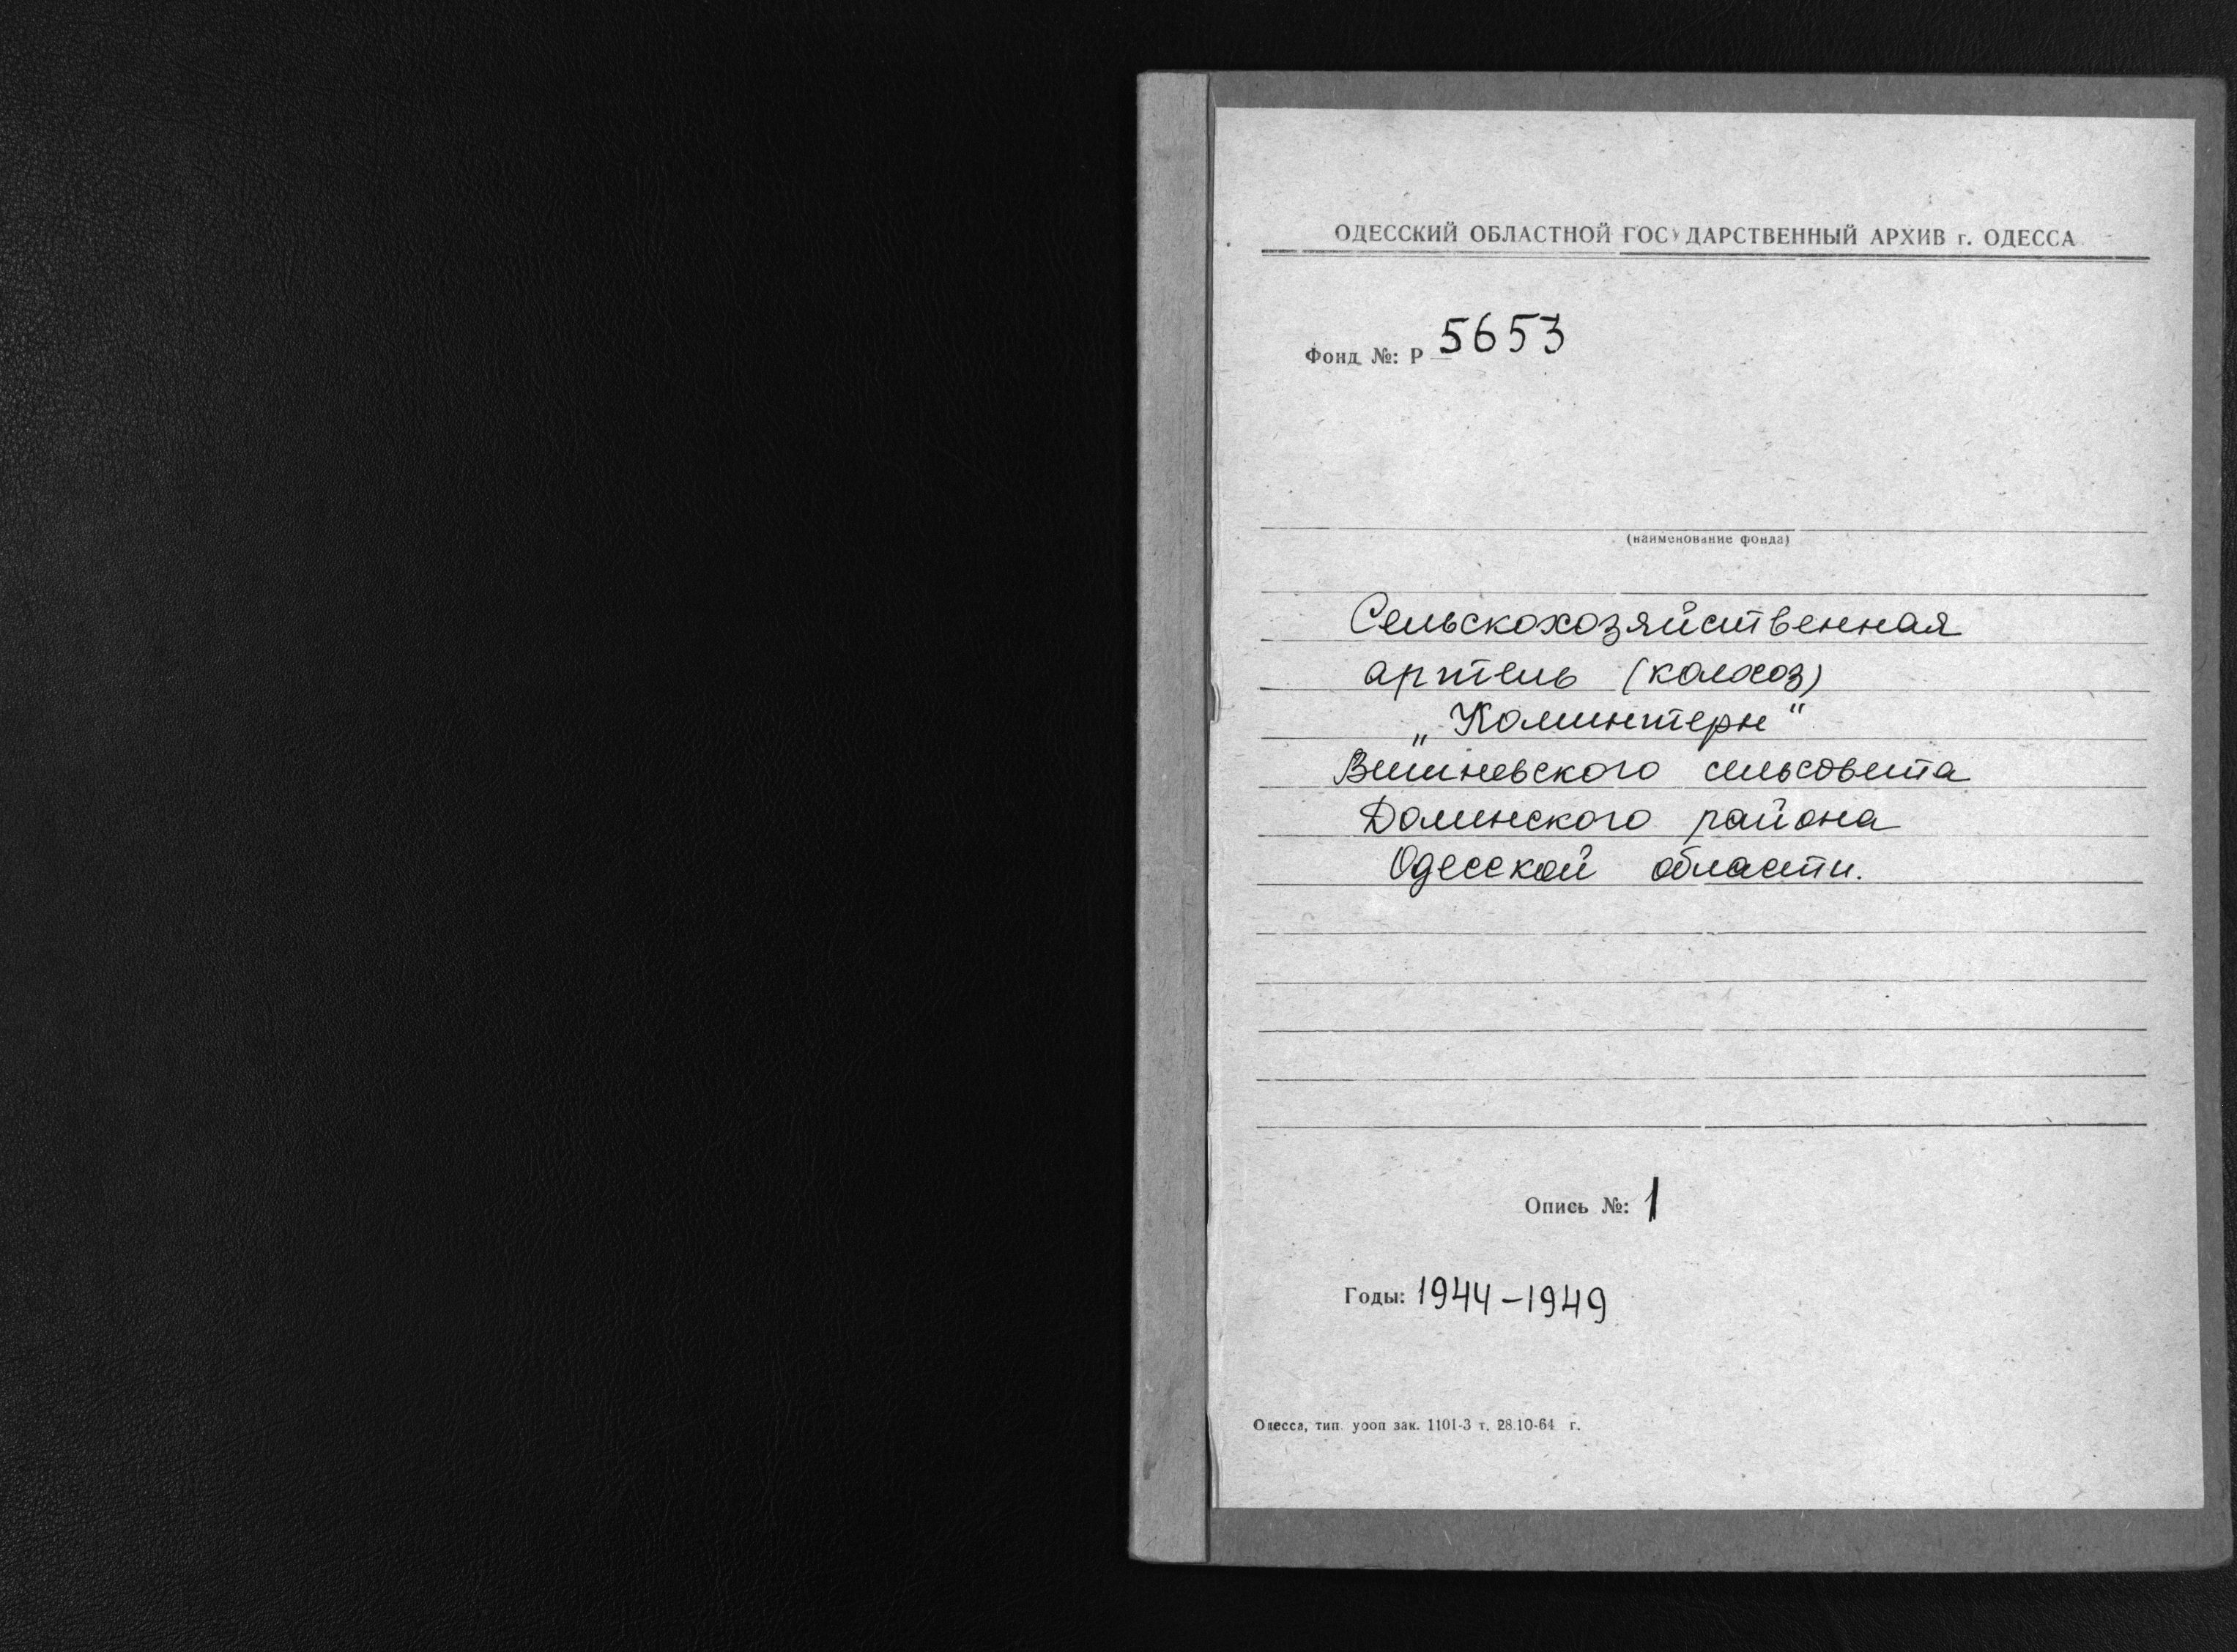 ОДЕССКИЙ ОБЛАСТНОЙ ГОСУДАРСТВЕННЫЙ АРХИВ г. ОДЕССА
Фонд №: Р 5653
(наименование фонда)
Сельскохозяйственная
артель (колхоз)
„Коминтерн"
Вишневского сельсовета
Долинского района
Одесской области.
Опись №: 1
Годы: 1944-1949
Одесса, тип. уооп зак. 1101-3 т. 28.10-64 г.